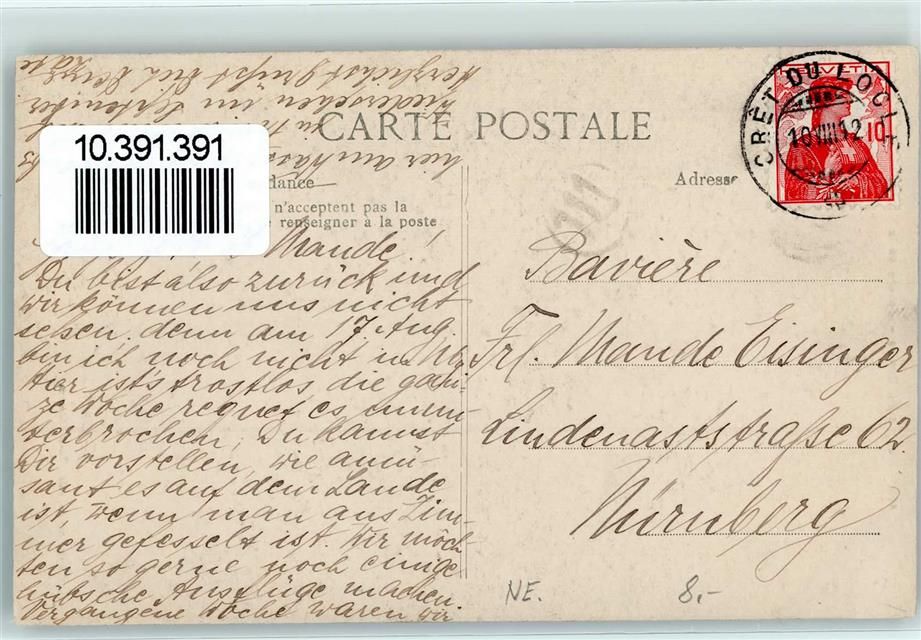 10.391.391
CARTE POSTALE
dance
n'acceptent pas la
renseigner à la poste
Adresse
CRÊT DU LOCLE
10 VIII 12
HELVETIA
10
Maude!
Du bist also zurück und
wir können uns nicht
sehen, denn am 17. Aug.
bin ich noch nicht in Nbg.
Hier ist's trostlos, die gan-
ze Woche regnet es unun-
terbrochen, Du kannst
Dir vorstellen, wie amü-
sant es auf dem Lande
ist, wenn man ans Zim-
mer gefesselt ist. Wir möch-
ten so gerne noch einige
hübsche Ausflüge machen.
Vergangene Woche waren wir
hier am
Wiedersehen im September
Herzlichst grüßt Dich Deine
Bavière
Frl. Maude Eisinger
Lindenaststraße 62.
Nürnberg
NE.
8.-